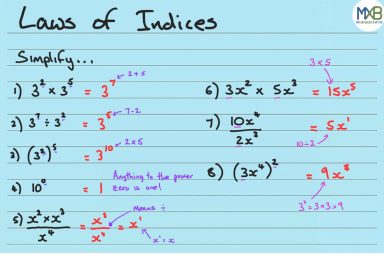 Laws of Indices
MXB
Simplify...
1) 3² × 3⁵ = 3⁷ 2+5
2) 3⁷ ÷ 3² = 3⁵ 7-2
3) (3²)⁵ = 3¹⁰ 2×5
4) 10⁰ = 1 Anything to the power zero is one!
5) x² × x³ / x⁴ = x⁵ / x⁴ = x¹ Means ÷ x¹ = x
6) 3x² × 5x³ = 15x⁵ 3×5
7) 10x⁴ / 2x³ = 5x¹ 10÷2
8) (3x⁴)² = 9x⁸ 3² = 3×3 = 9